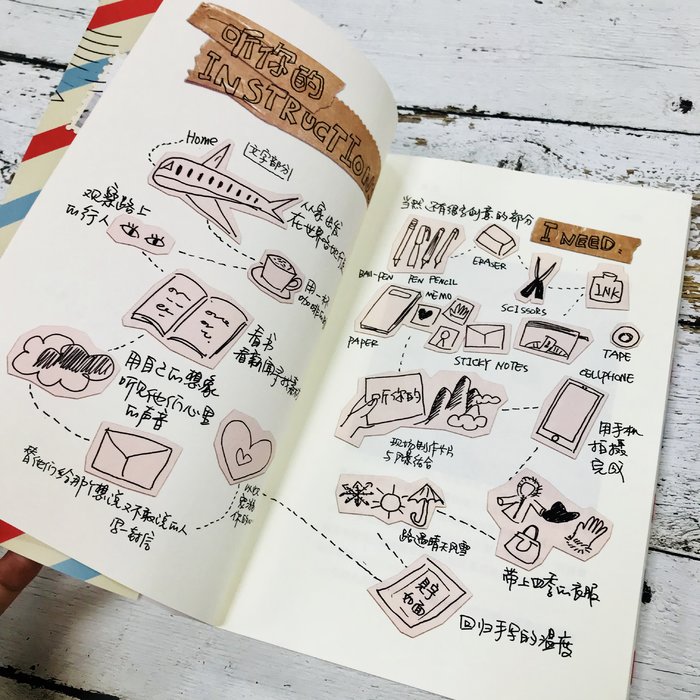 听你的
INSTRUCTION
Home
文字部分
从家出发
在世界各地
观察路上
的行人
用一杯
看书
用自己的想象
听见他们心里
的声音
替他们给那个想说又不敢说的人
写一封信
当然还有很有创意的部分
I NEED:
BALL-PEN
PEN PENCIL
ERASER
SCISSORS
INK
MEMO
PAPER
STICKY NOTES
TAPE
CELLPHONE
听你的
现场制作卡片
与风景结合
用手机
拍摄
完成
路遇晴天风雪
带上四季的衣服
见字
如面
回归手写的温度